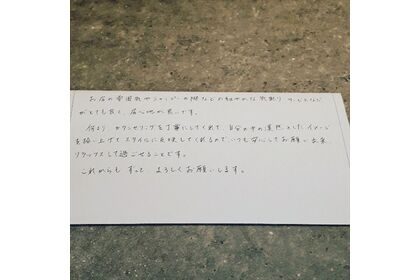 お店の雰囲気やシャンプーの際などの細やかな気配り サービスなど
がとても良く、居心地が良いです。
何より、カウンセリングを丁寧にしてくれて、自分の中の漠然としたイメージ
を拾い上げてスタイルに反映してくれるので、いつも安心してお願い出来、
リラックスして過ごせることです。
これからも ずっと、よろしくお願いします。